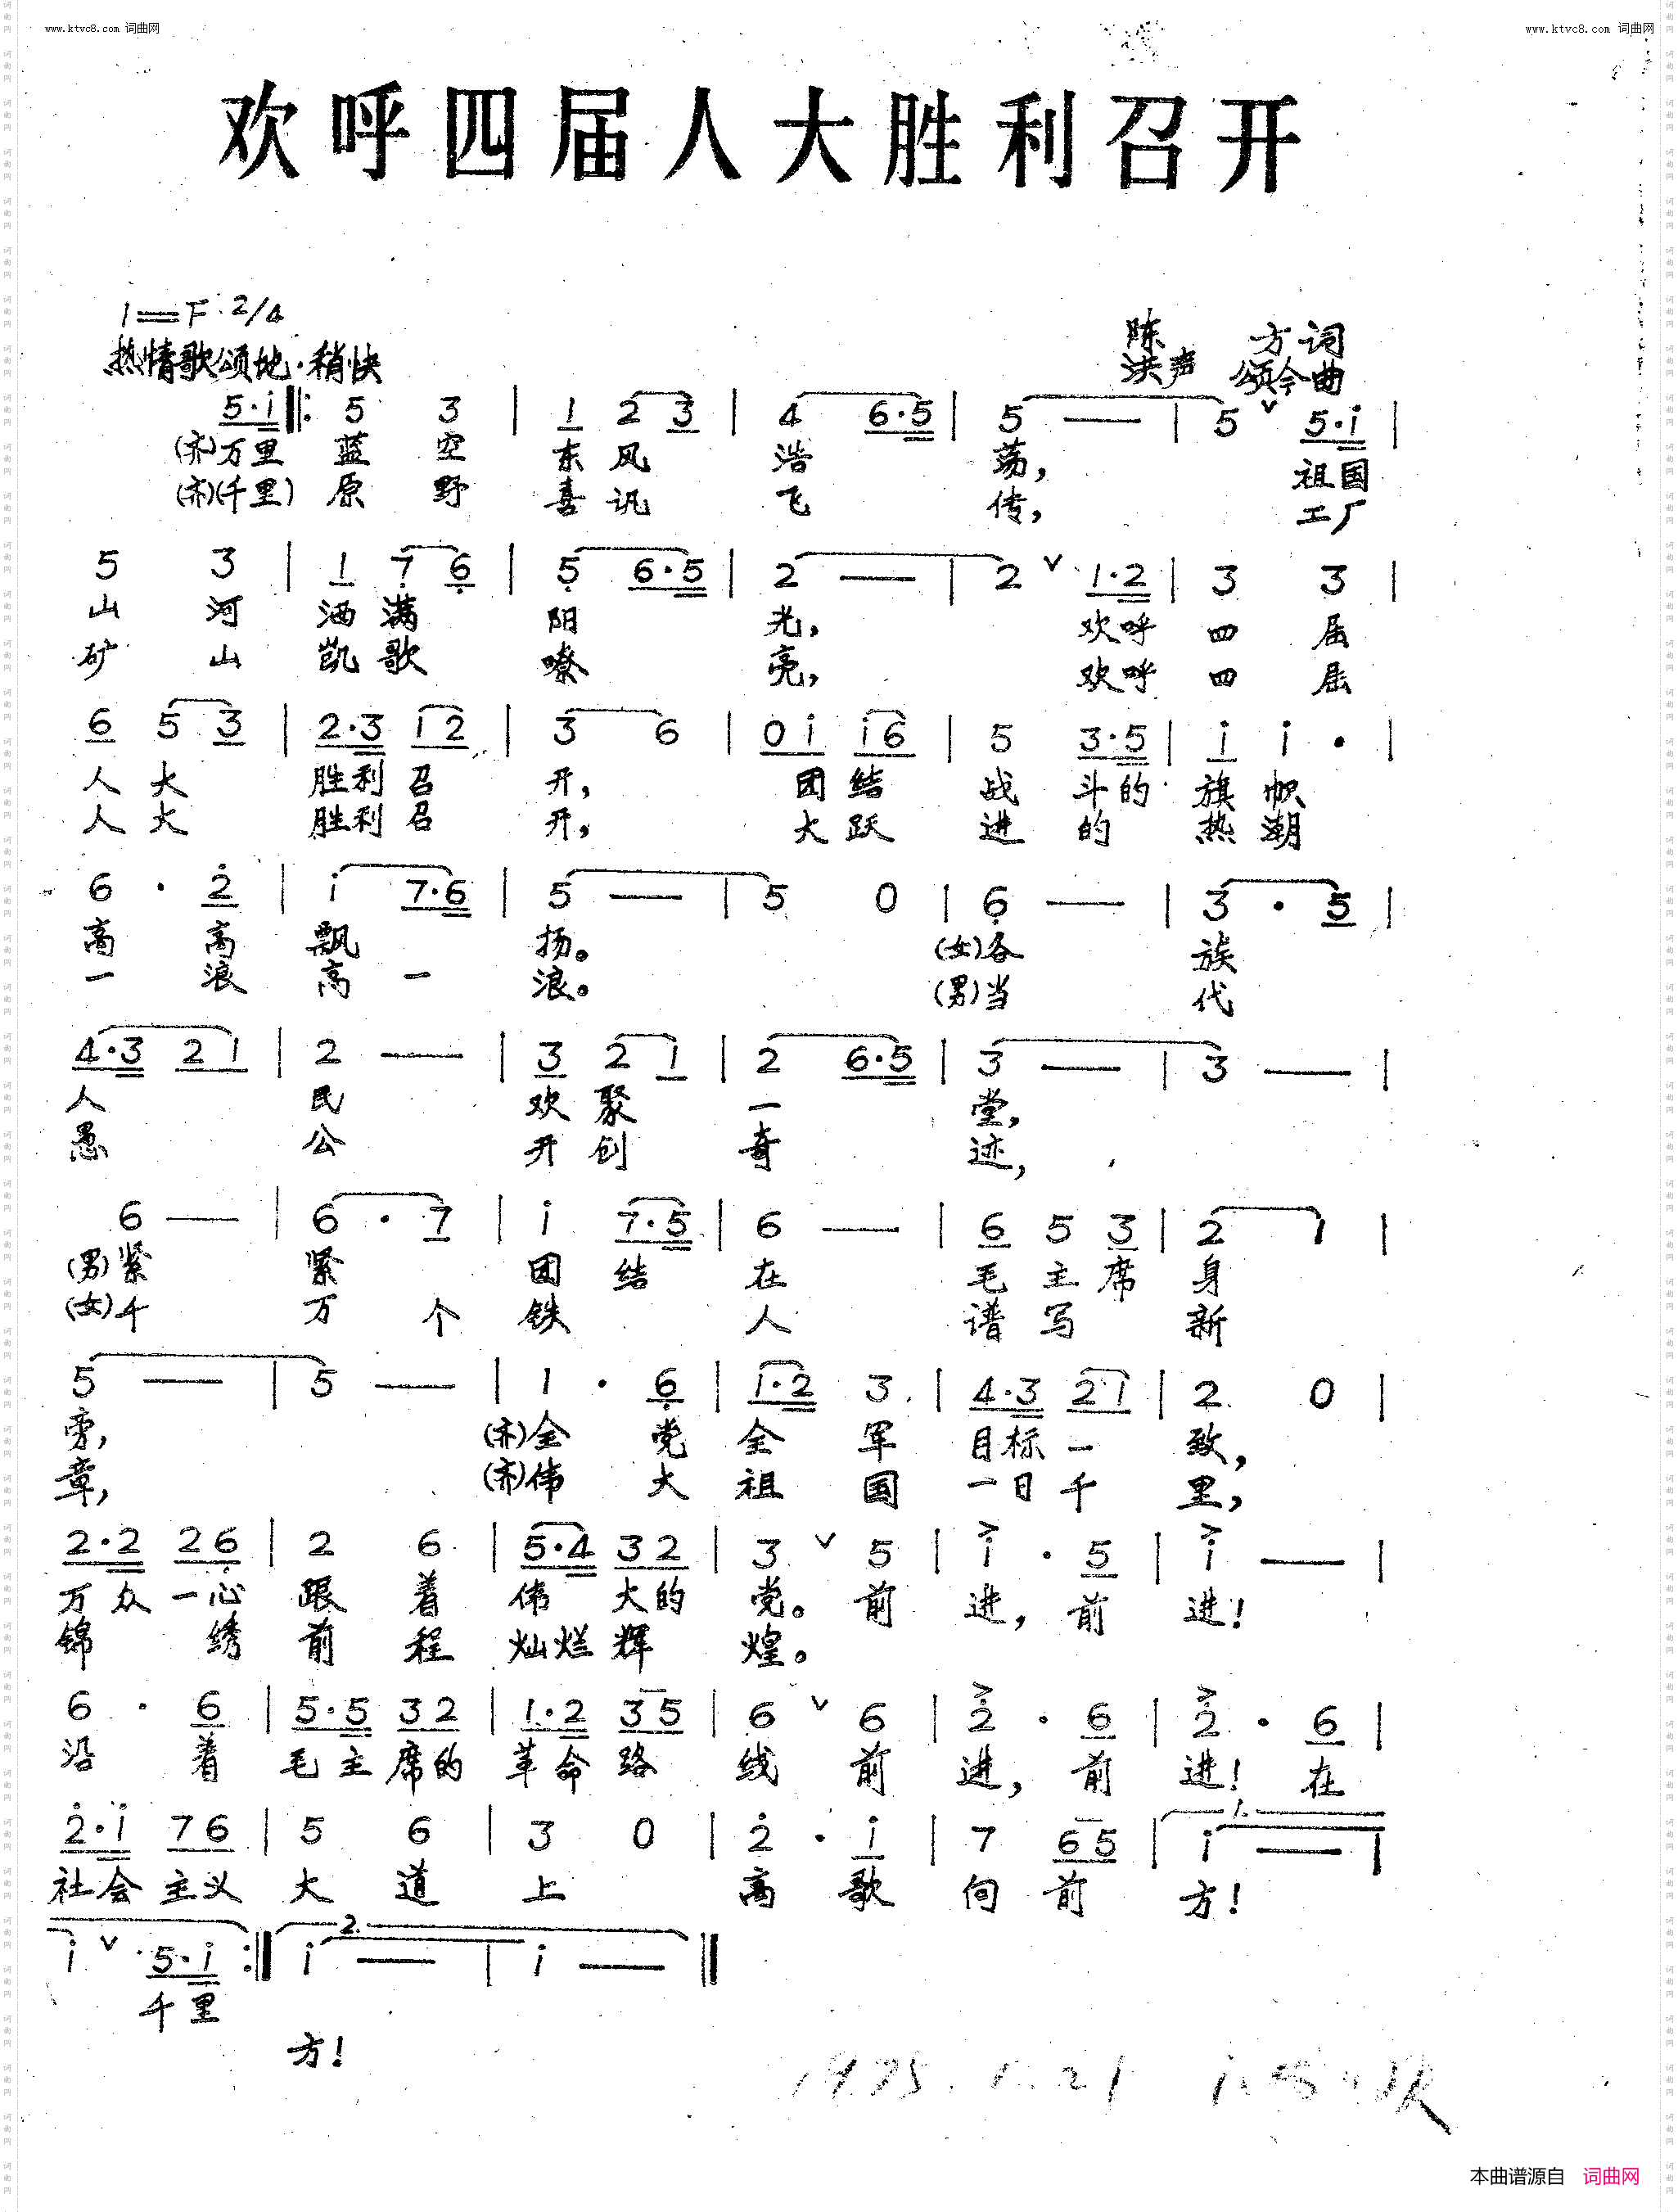 www.ktvc8.com 词曲网
www.ktvc8.com 词曲网
欢呼四届人大胜利召开
1=F 2/4
陈 方词
热情歌颂地·稍快
洪声 颂今曲
5·i 5 3 | 1 2 3 | 4 6·5 | 5 — | 5 ∨ 5·i |
(齐)万里 蓝 空 东 风 浩 荡, 祖国
(齐)(千里) 原 野 喜 讯 飞 传, 工厂
5 3 | 1 7 6 | 5 6·5 | 2 — | 2 ∨ 1·2 | 3 3 |
山 河 洒 满 阳 光, 欢呼 四 届
矿 山 凯 歌 嘹 亮, 欢呼 四 届
6 5 3 | 2·3 1 2 | 3 6 | 0 i i 6 | 5 3·5 | i i · |
人 大 胜利 召 开, 团 结 战 斗的 旗 帜
人 大 胜利 召 开, 大 跃 进 的 热 潮
6 · 2 | i 7·6 | 5 — | 5 0 | 6 — | 3 · 5 |
高 高 飘 扬。 (女)各 族
一 浪 高 一 浪。 (男)当 代
4·3 2 1 | 2 — | 3 2 1 | 2 6·5 | 3 — | 3 — |
人 民 欢 聚 一 堂,
愚 公 开 创 奇 迹,
6 — | 6 · 7 | i 7·5 | 6 — | 6 5 3 | 2 1 |
(男)紧 紧 团 结 在 毛 主 席 身
(女)千 万 个 铁 人 谱 写 新
5 — | 5 — | 1 · 6 | 1·2 3 | 4·3 2·1 | 2 0 |
旁, (齐)全 党 全 军 目标 一 致,
章, (齐)伟 大 祖 国 一日 千 里,
2·2 2 6 | 2 6 | 5·4 3 2 | 3 ∨ 5 | i · 5 | i — |
万 众 一心 跟 着 伟 大的 党。 前 进, 前 进!
锦 绣 前 程 灿烂 辉 煌。
6 · 6 | 5·5 3 2 | 1·2 3 5 | 6 ∨ 6 | 2 · 6 | 2 · 6 |
沿 着 毛主 席的 革命 路 线 前 进, 前 进! 在
2·i 7 6 | 5 6 | 3 0 | 2 · i | 7 6 5 | 1. i — |
社会 主义 大 道 上 高 歌 向 前 方!
i ∨ 5·i :‖ 2. i — | i — ‖
千里
方!
1975.1.21
本曲谱源自 词曲网